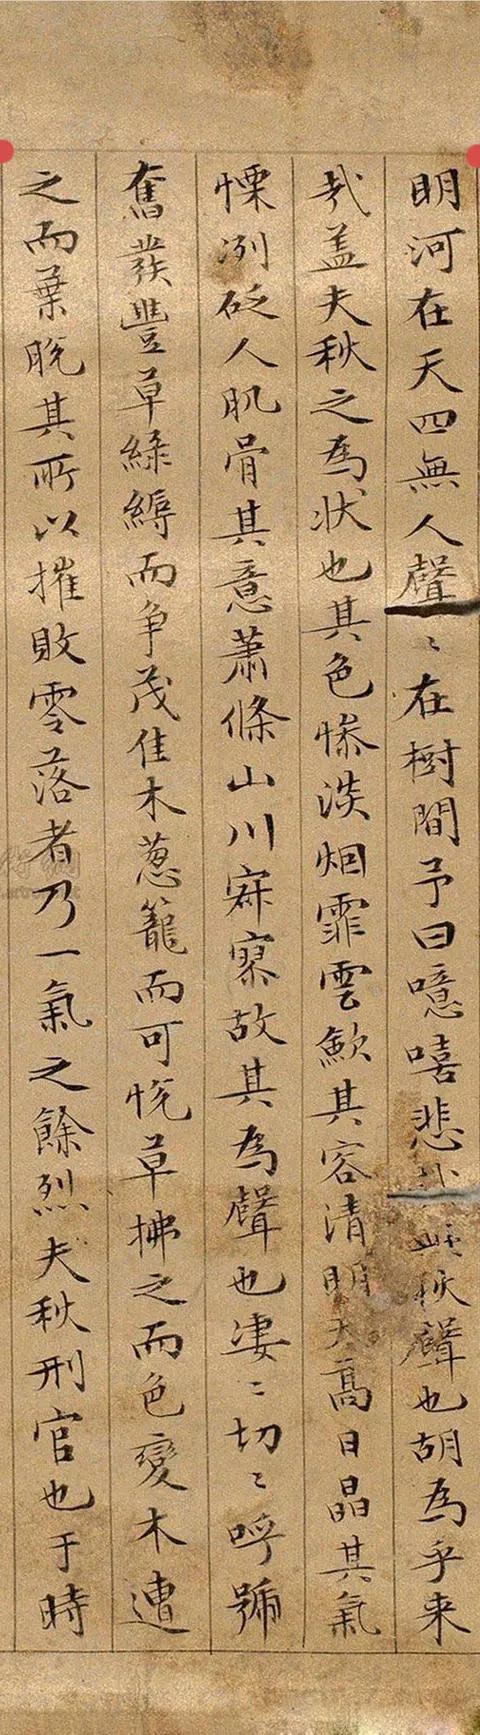 明河在天四無人聲〻在樹間予曰噫嘻悲此秋聲也胡為乎来
㢤盖夫秋之為状也其色惨淡烟霏雲歛其容清明天高日晶其氣
慄冽砭人肌骨其意蕭條山川寂寥故其為聲也凄〻切〻呼號
奮發豐草緑縟而争茂佳木葱籠而可悅草拂之而色變木遭
之而葉脫其所以摧敗零落者乃一氣之餘烈夫秋刑官也于時